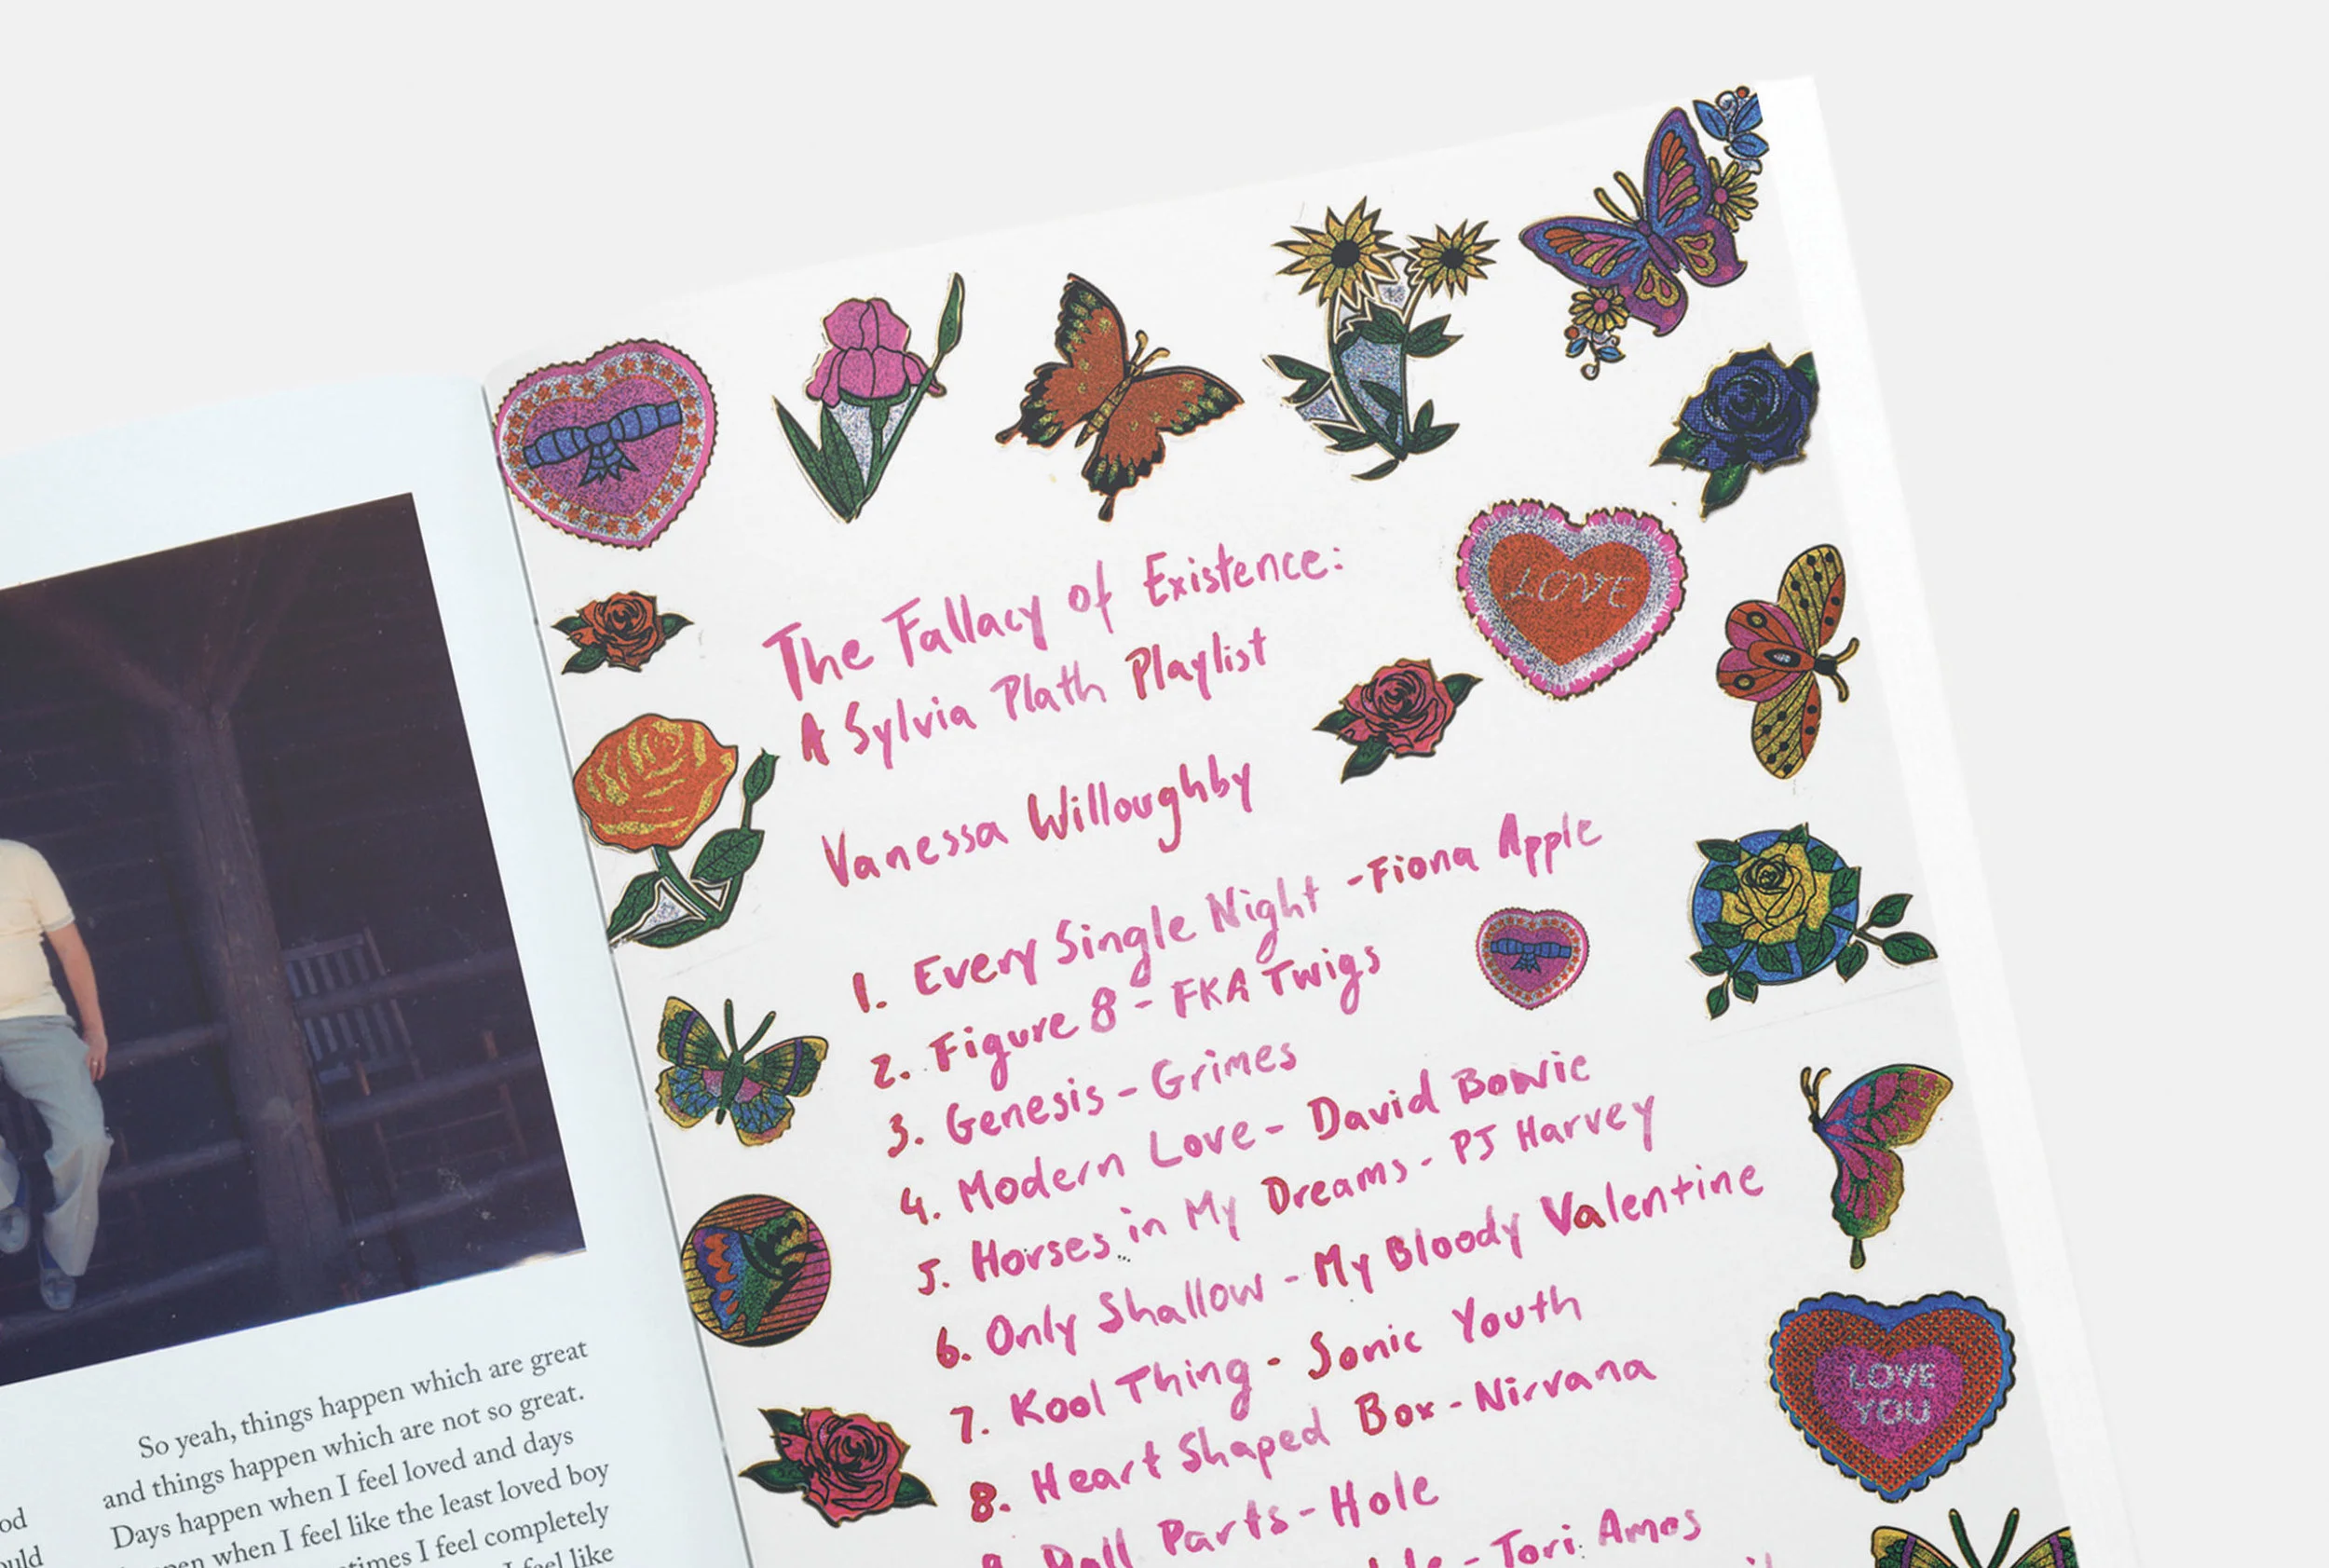 So yeah, things happen which are great
and things happen which are not so great.
Days happen when I feel loved and days
when I feel like the least loved boy
I feel completely
feel like
The Fallacy of Existence:
A Sylvia Plath Playlist
Vanessa Willoughby
1. Every Single Night - Fiona Apple
2. Figure 8 - FKA Twigs
3. Genesis - Grimes
4. Modern Love - David Bowie
5. Horses in My Dreams - PJ Harvey
6. Only Shallow - My Bloody Valentine
7. Kool Thing - Sonic Youth
8. Heart Shaped Box - Nirvana
9. Doll Parts - Hole
- Tori Amos
LOVE
LOVE
YOU